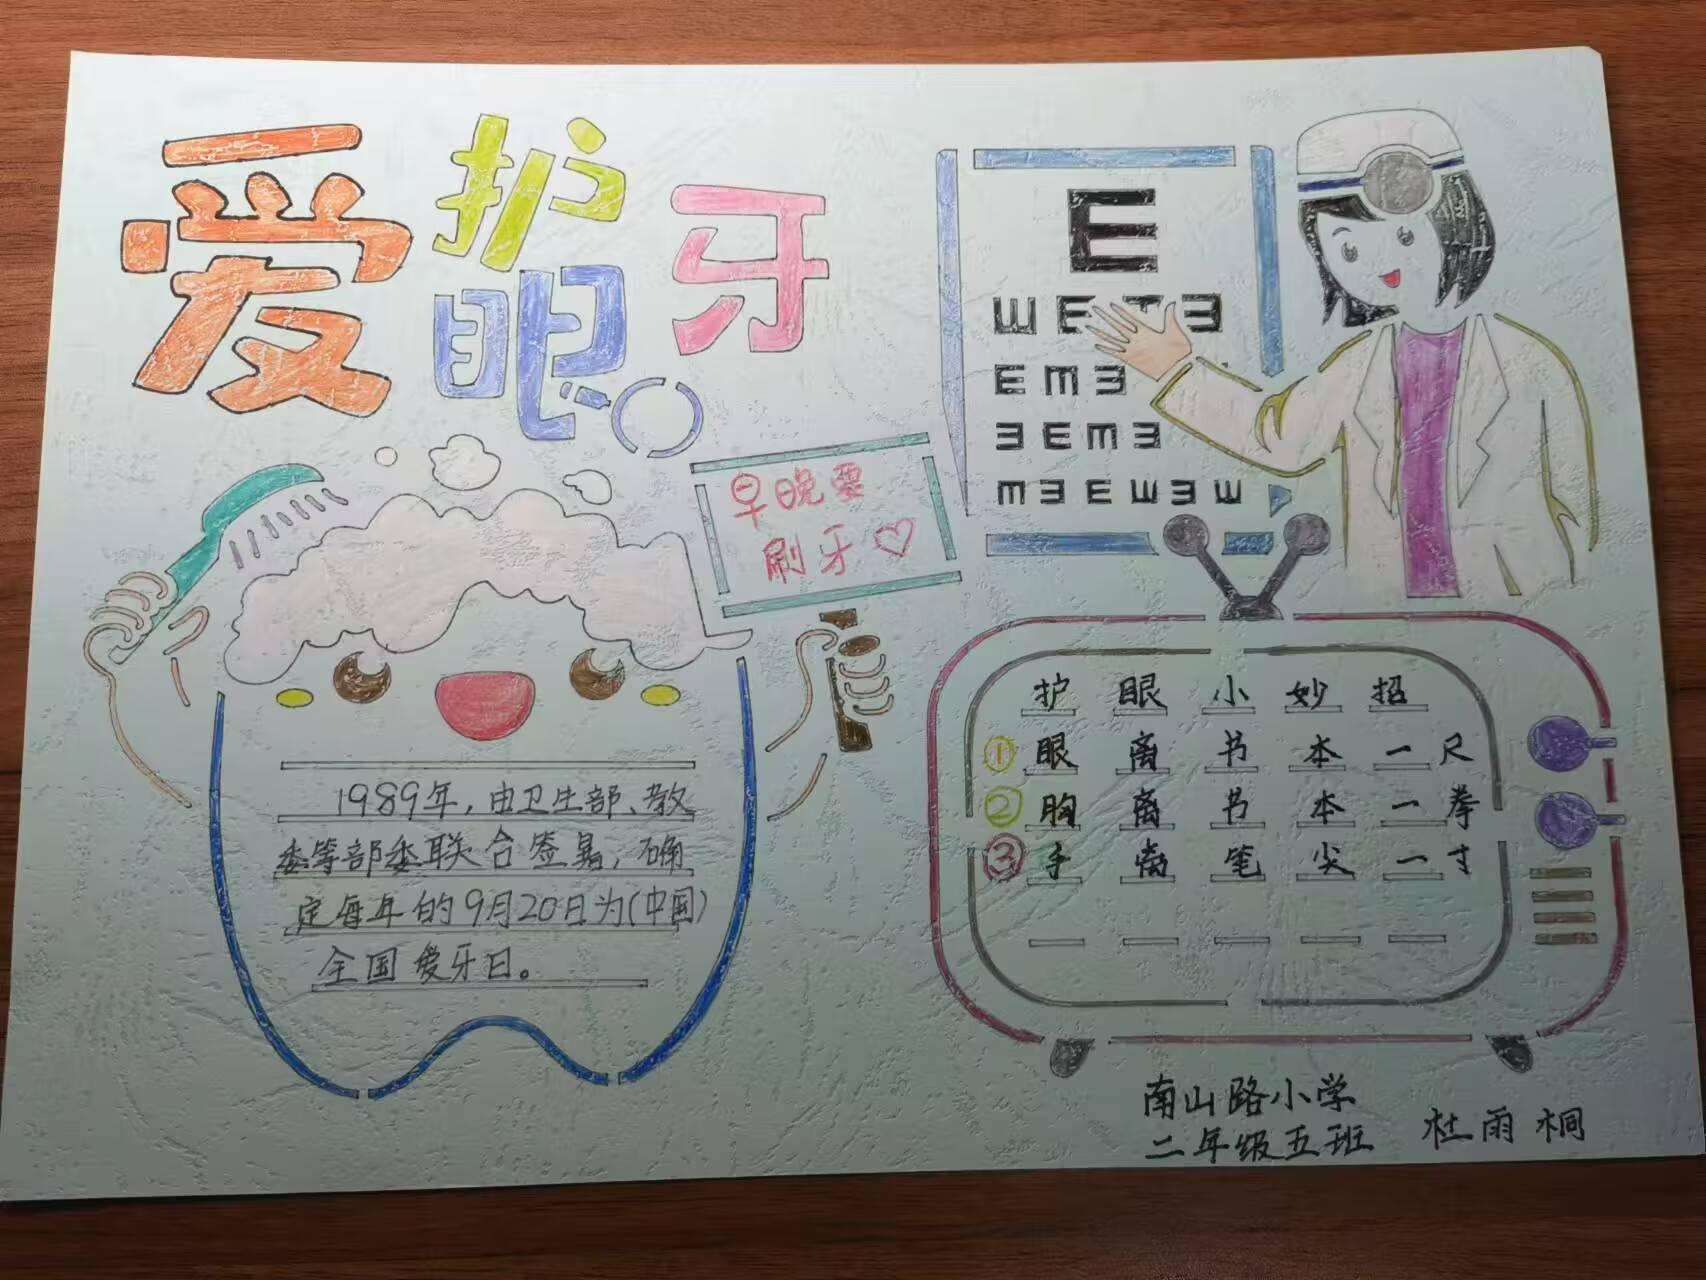 爱护眼牙
早晚要
刷牙
E
ШETƎ
EmƎ
ƎEmƎ
mƎEШƎШ
1989年，由卫生部、教
委等部委联合签署，确
定每年的9月20日为（中国）
全国爱牙日。
护眼小妙招
①眼离书本一尺
②胸离书本一拳
③手离笔尖一寸
南山路小学
二年级五班 杜雨桐